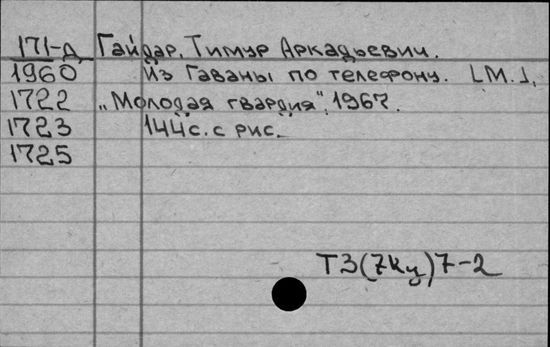 171-д Гайдар, Тимур Аркадьевич.
1960 Из Гаваны по телефону. [М.],
1722 „Молодая гвардия", 1967.
1723 144с. с рис.
1725
Т3(7Ку)7-2